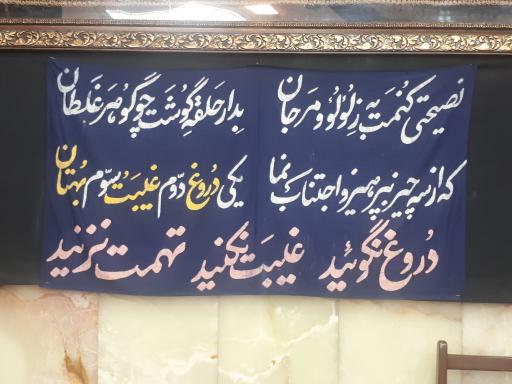 نصیحتی کنمت به ز لولو و مرجان بدار حلقه گوشت چو گوهر غلطان
که از سه چیز بپرهیز و اجتناب نما یکی دروغ دوّم غیبت سوّم بهتان
دروغ نگوئید غیبت نکنید تهمت نزنید